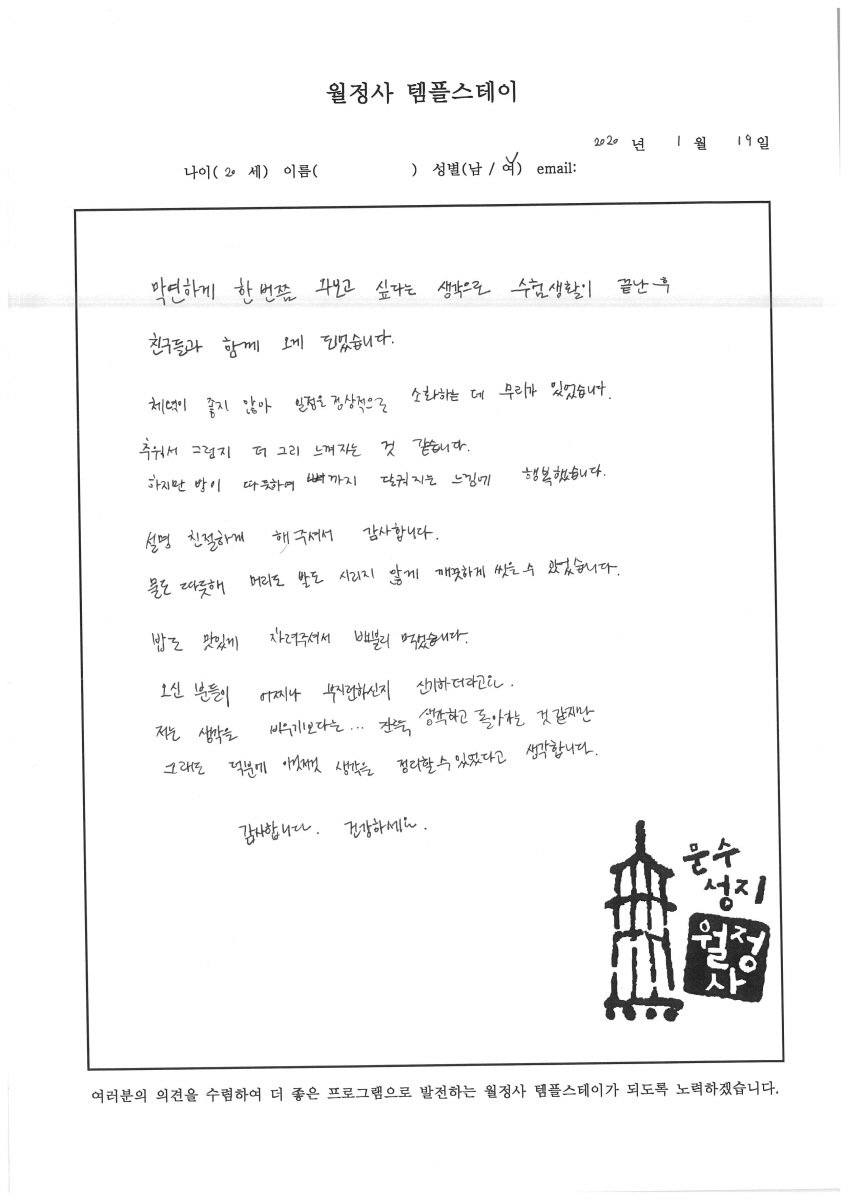 월정사 템플스테이
2020 년 1 월 19일
나이( 20 세) 이름( ) 성별(남 / 여) email:
막연하게 한 번쯤 와보고 싶다는 생각으로 수험생활이 끝난 후
친구들과 함께 오게 되었습니다.
체력이 좋지 않아 일정을 정상적으로 소화하는 데 무리가 있었습니다.
추워서 그런지 더 그리 느껴지는 것 같습니다.
하지만 방이 따뜻하여 뼈까지 달궈지는 느낌에 행복했습니다.
설명 친절하게 해주셔서 감사합니다.
물도 따뜻해 머리도 발도 시리지 않게 깨끗하게 씻을 수 있었습니다.
밥도 맛있게 차려주셔서 배불리 먹었습니다.
오신 분들이 어찌나 부지런하신지 신기하더라고요.
저는 생각을 비우기보다는... 잔뜩 생각하고 돌아가는 것 같지만
그래도 덕분에 이것저것 생각을 정리할 수 있었다고 생각합니다.
감사합니다. 건강하세요.
문수
성지
월정
사
여러분의 의견을 수렴하여 더 좋은 프로그램으로 발전하는 월정사 템플스테이가 되도록 노력하겠습니다.